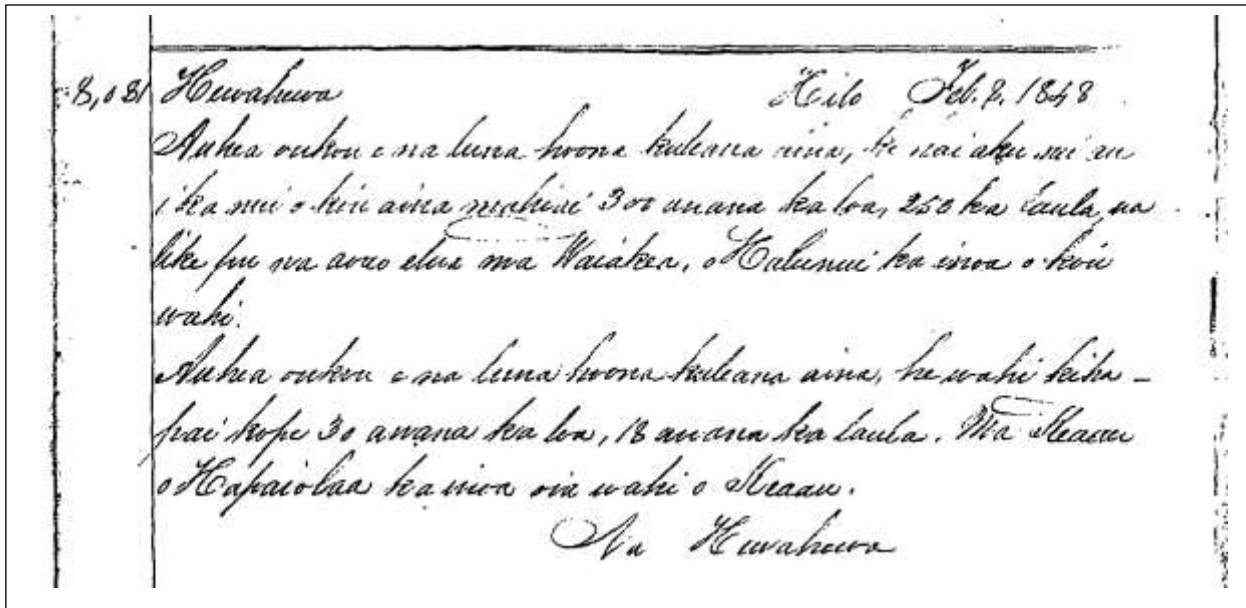 8,081 Hewahewa Hilo Feb. 8. 1848
Auhea oukou e na luna hoona kuleana aina, ke hai aku nei au
i ka nui o kuu aina mahiai 300 anana ka loa, 250 ka laula, ua
like pu na aoao elua ma Waiakea, o Halunui ka inoa o kuu
wahi.
Auhea oukou e na luna hoona kuleana aina, he wahi kiha-
pai kope 30 anana ka loa, 18 anana ka laula. Ma Keaau
o Hapaiolaa ka inoa oia wahi o Keaau.
Na Hewahewa